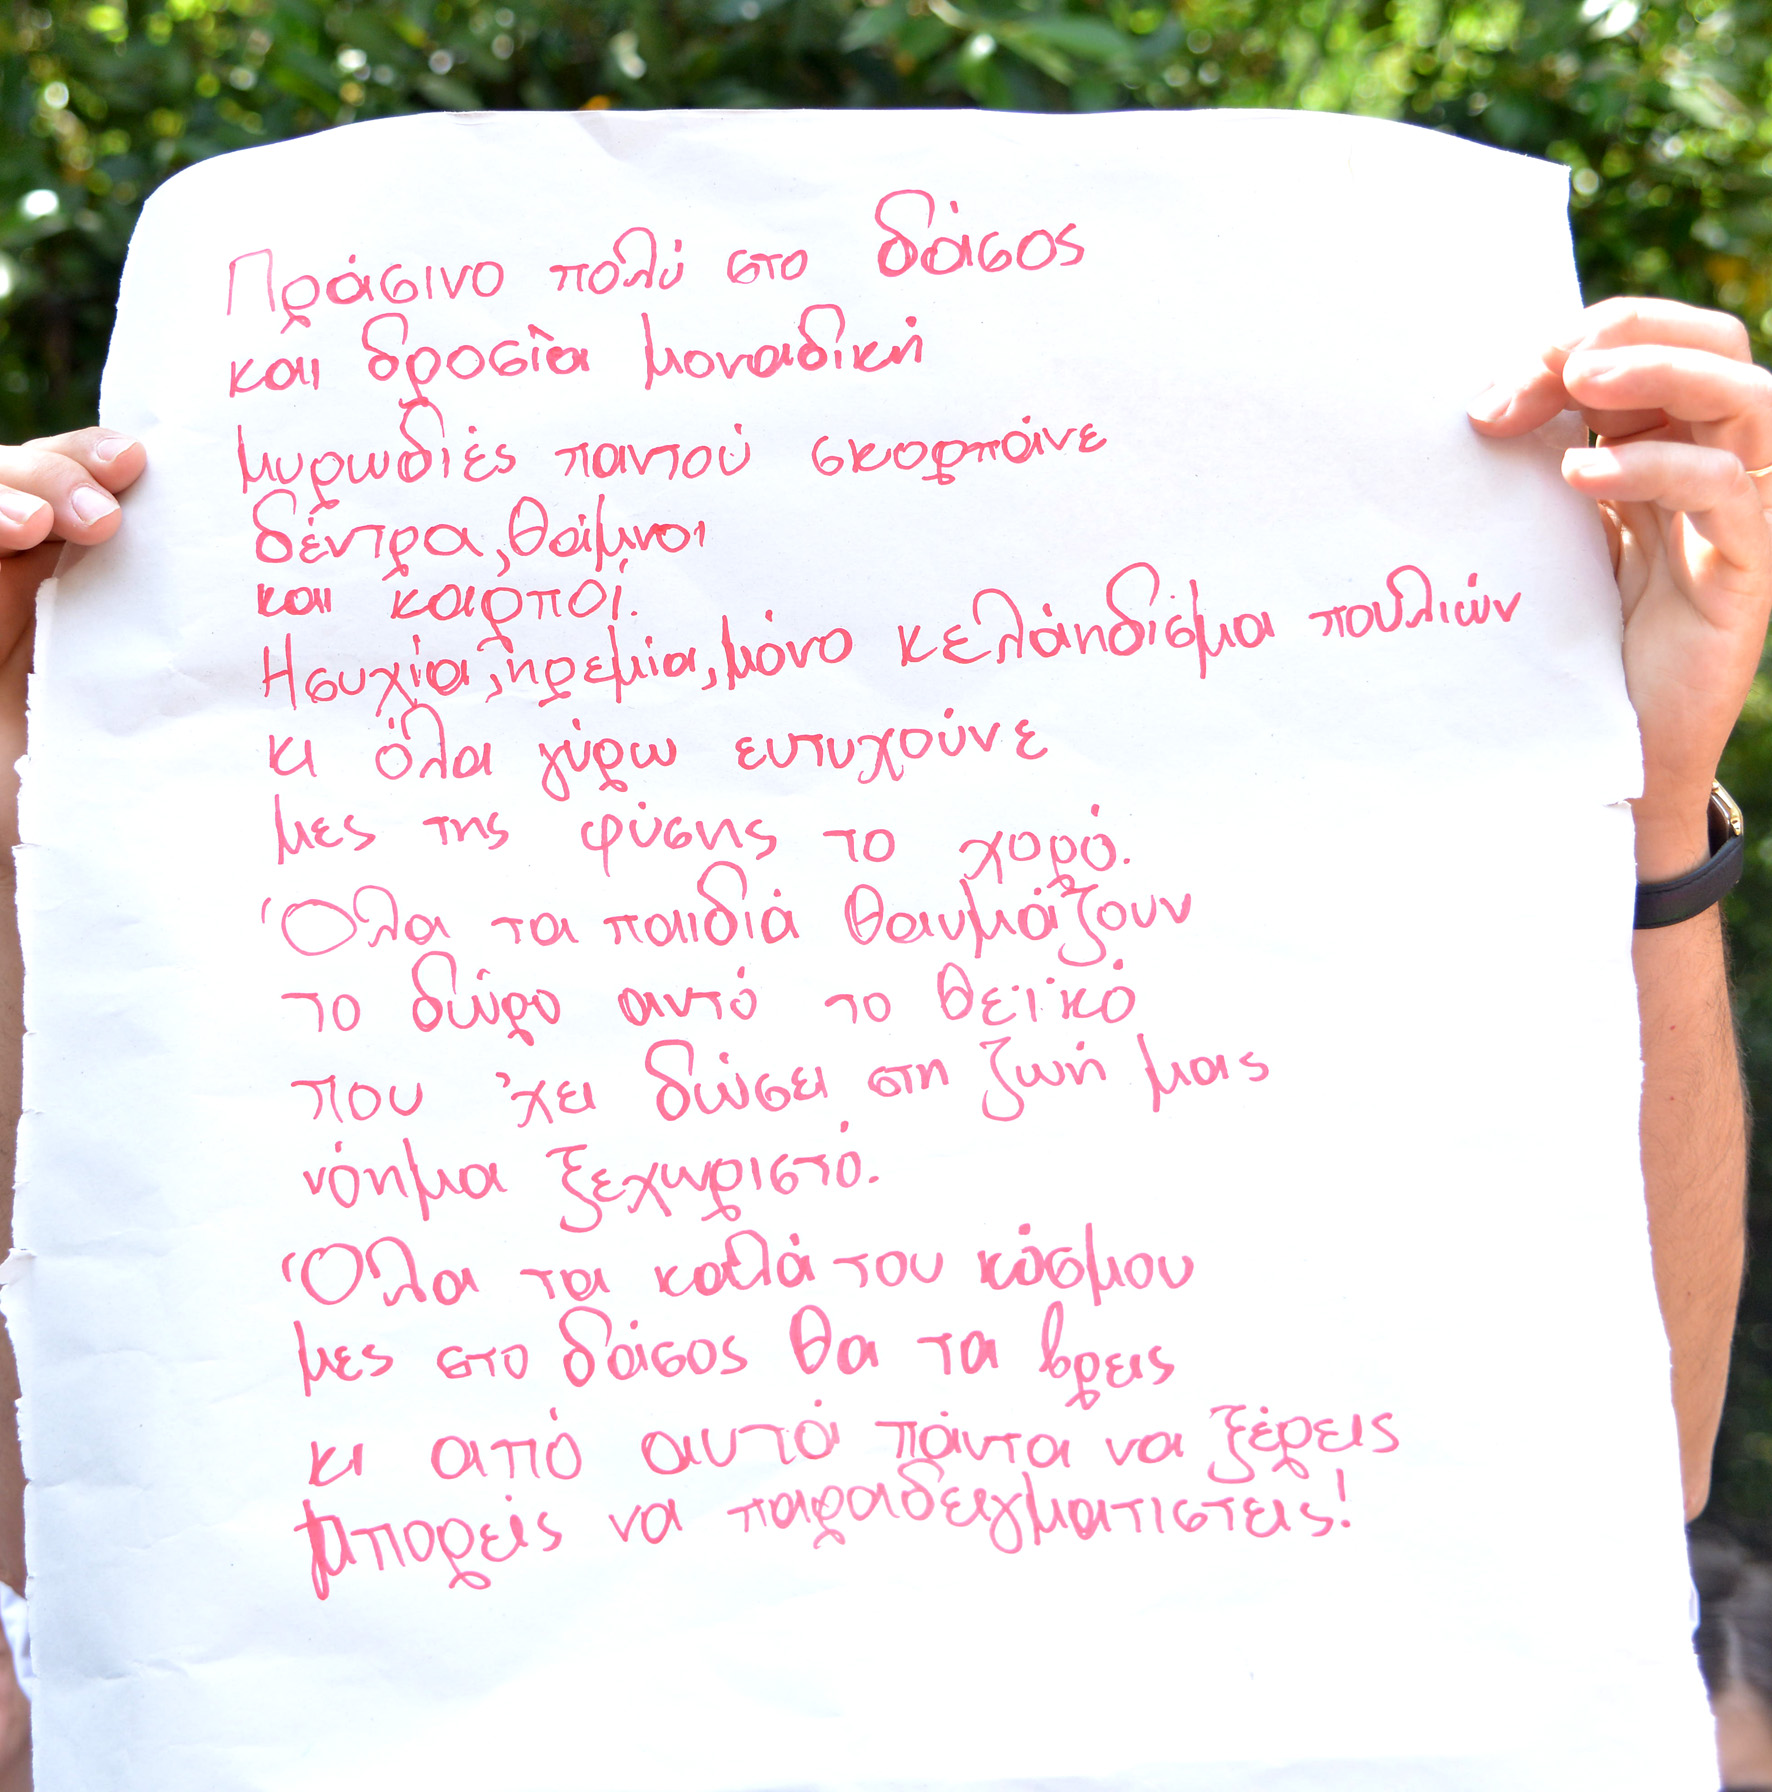 Πράσινο πολύ στο δάσος
και δροσιά μοναδική
μυρωδιές παντού σκορπάνε
δέντρα, θάμνοι
και καρποί.
Ησυχία, ηρεμία, μόνο κελάηδισμα πουλιών
κι όλα γύρω ευτυχούνε
μες της φύσης το χορό.
Όλα τα παιδιά θαυμάζουν
το δώρο αυτό το θεϊκό
που 'χει δώσει στη ζωή μας
νόημα ξεχωριστό.
Όλα τα καλά του κόσμου
μες στο δάσος θα τα βρεις
κι από αυτά πάντα να ξέρεις
μπορείς να παραδειγματιστείς!